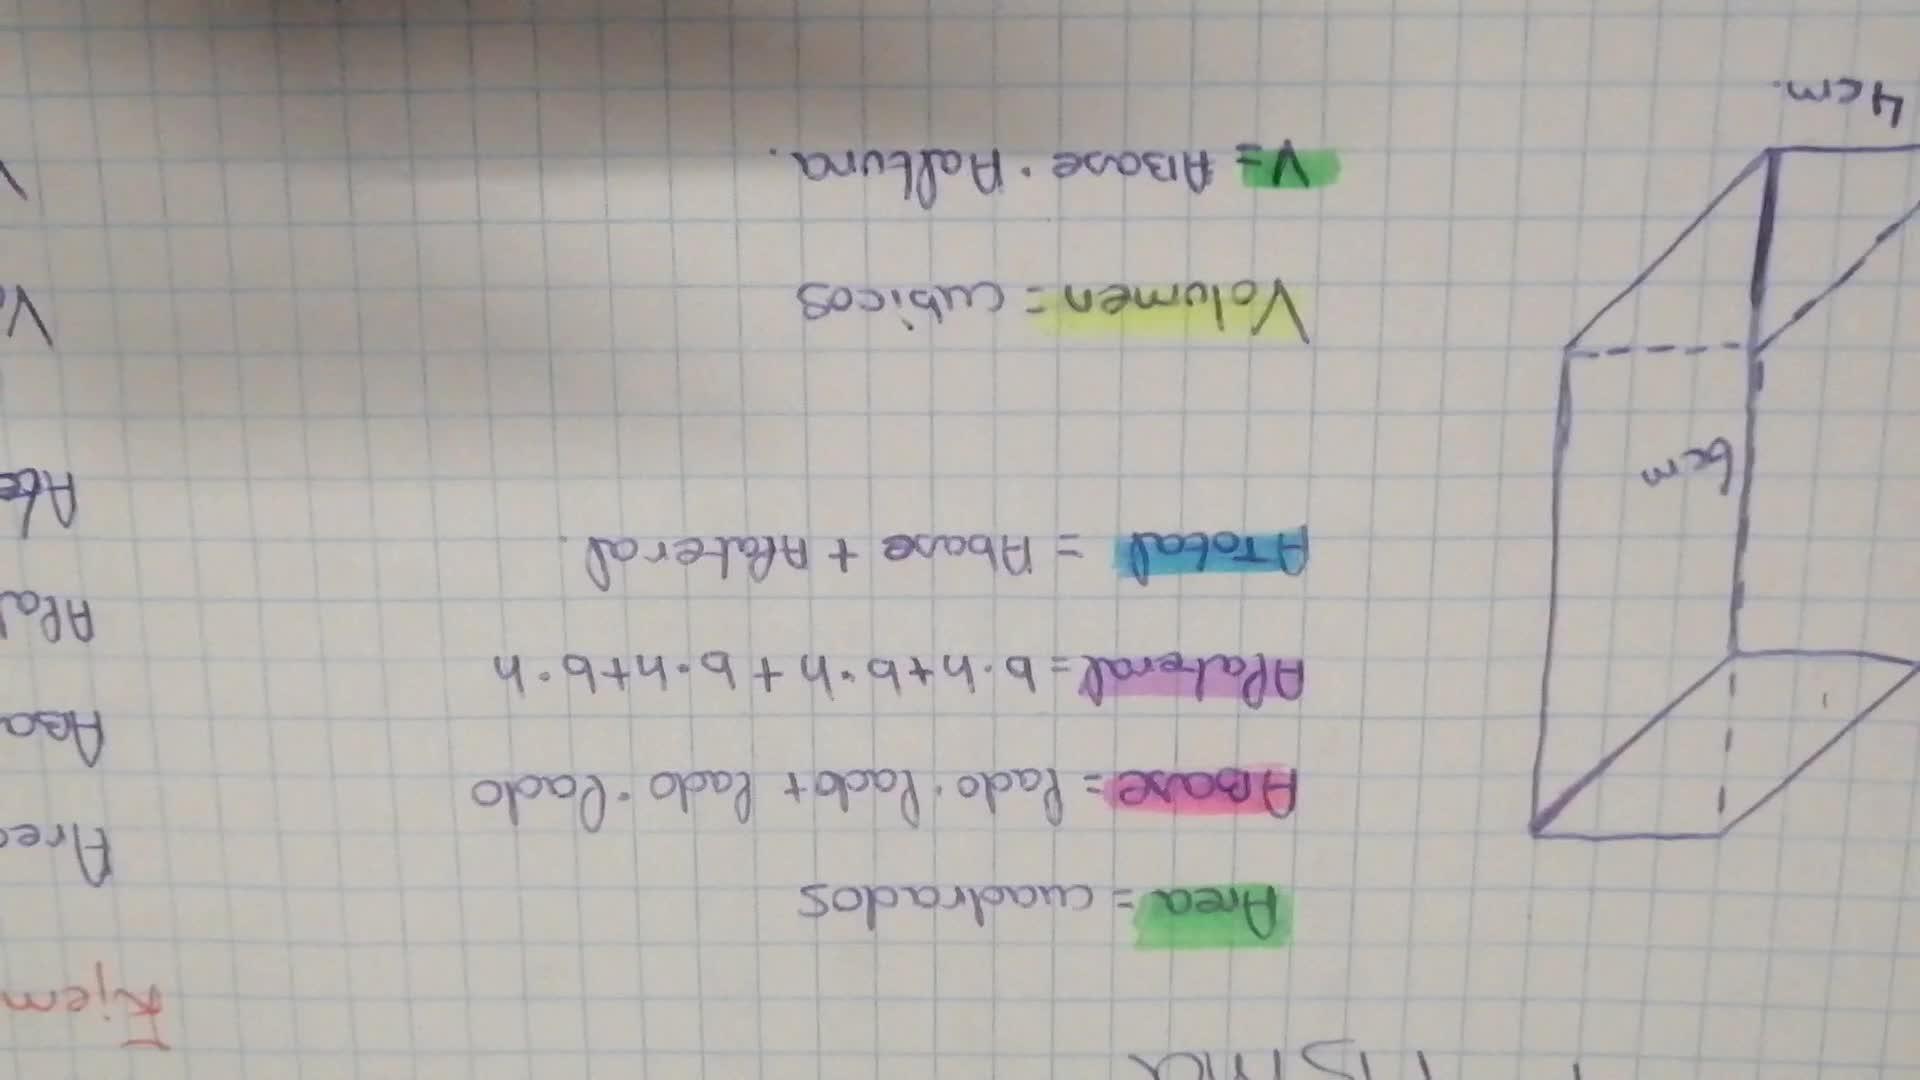 Area = cuadrados
ABase = lado · lado + lado · lado
Alateral = b·h+b·h+b·h+b·h
ATotal = Abase + Alateral.
Volumen = cubicos
V = ABase · Aaltura.
6cm
4cm.
Ejem